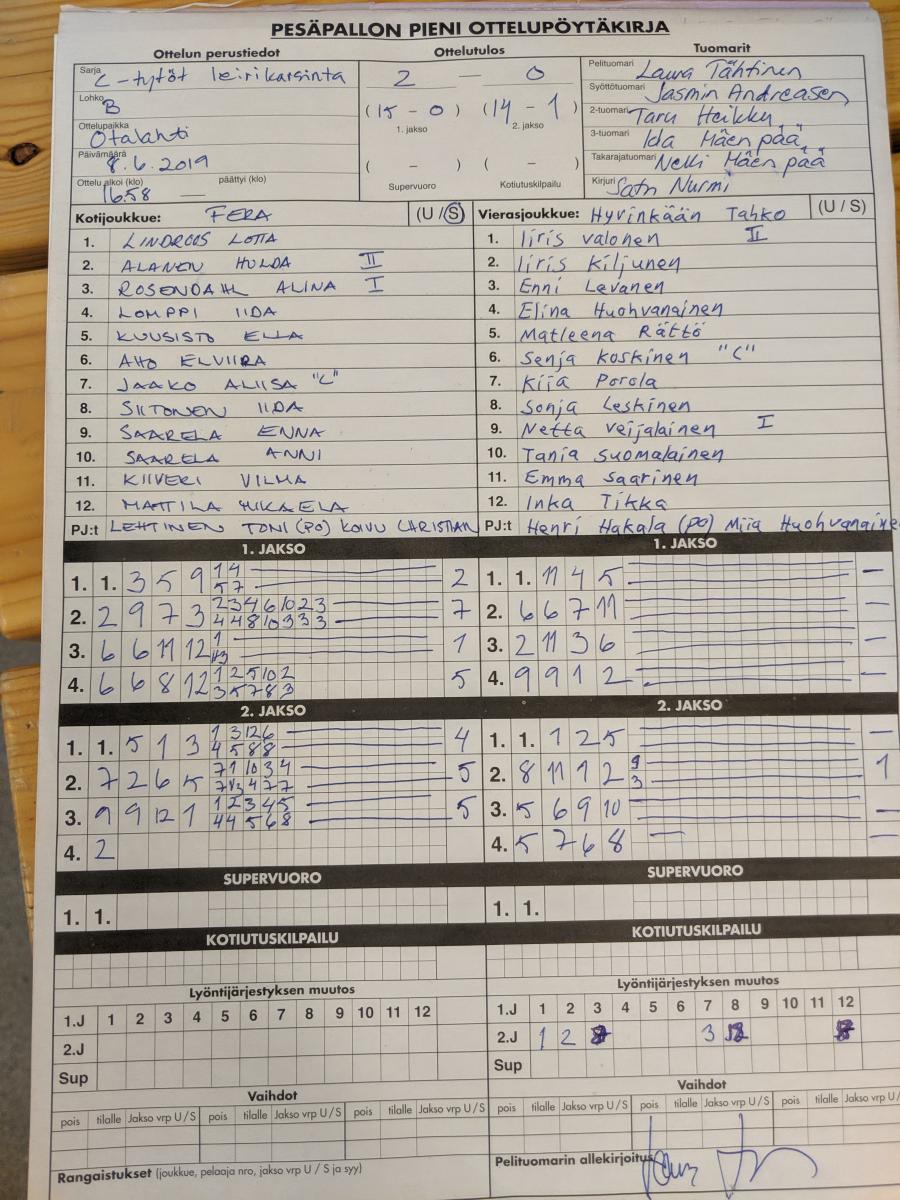 PESÄPALLON PIENI OTTELUPÖYTÄKIRJA
Ottelun perustiedot
Sarja C-tytöt leirikarsinta
Lohko B
Ottelupaikka Otalahti
Päivämäärä 8.6.2019
Ottelu alkoi (klo) 16.58 päättyi (klo) —
Ottelutulos
2 — 0
(15 - 0) (14 - 1)
1. jakso 2. jakso
( - ) ( - )
Supervuoro Kotiutuskilpailu
Tuomarit
Pelituomari Laura Tähtinen
Syöttötuomari Jasmin Andreasen
2-tuomari Taru Heikku
3-tuomari Ida Mäenpää
Takarajatuomari Nelli Mäenpää
Kirjuri Satu Nurmi
Kotijoukkue: FERA (U / S)
1. LINDROOS LOTTA
2. ALANEN HULDA II
3. ROSENDAHL ALINA I
4. LOMPPI IIDA
5. KUUSISTO ELLA
6. AHO ELVIIRA
7. JAAKO ALIISA "C"
8. SIITONEN IIDA
9. SAARELA ENNA
10. SAARELA ANNI
11. KIIVERI VILMA
12. MATTILA MIKAELA
PJ:t LEHTINEN TONI (PO) KOIVU CHRISTIAN
Vierasjoukkue: Hyvinkään Tahko (U / S)
1. Iiris Valonen II
2. Iiris Kiljunen
3. Enni Levanen
4. Elina Huohvanainen
5. Matleena Rättö
6. Senja Koskinen "C"
7. Kiia Porola
8. Sonja Leskinen
9. Netta Veijalainen I
10. Tania Suomalainen
11. Emma Saarinen
12. Inka Tikka
PJ:t Henri Hakala (PO) Miia Huohvanaine
1. JAKSO
1. 1. 3 5 9 1 4 2
5 7
2. 2 9 7 3 2 3 4 6 10 2 3 7
4 4 8 10 3 3 3
3. 6 6 11 12 1 1
V3
4. 6 6 8 12 1 2 5 10 2 5
3 5 7 8 3
1. JAKSO
1. 1. 11 4 5 —
2. 6 6 7 11 —
3. 2 11 3 6 —
4. 9 9 1 2 —
2. JAKSO
1. 1. 5 1 3 1 3 12 6 4
4 5 8 8
2. 7 2 6 5 7 1 10 3 4 5
7 V3 4 7 7
3. 9 9 12 1 1 2 3 4 5 5
4 4 5 6 8
4. 2
2. JAKSO
1. 1. 1 2 5 —
2. 8 11 1 2 9 1
3
3. 5 6 9 10 —
4. 5 7 6 8 —
SUPERVUORO
1. 1.
SUPERVUORO
1. 1.
KOTIUTUSKILPAILU
KOTIUTUSKILPAILU
Lyöntijärjestyksen muutos
1.J 1 2 3 4 5 6 7 8 9 10 11 12
2.J
Sup
Lyöntijärjestyksen muutos
1.J 1 2 3 4 5 6 7 8 9 10 11 12
2.J 1 2 3
Sup
Vaihdot
pois tilalle Jakso vrp U / S pois tilalle Jakso vrp U / S pois tilalle Jakso vrp U / S
Vaihdot
pois tilalle Jakso vrp U / S pois tilalle Jakso vrp U / S pois tilalle Jakso vrp U /
Rangaistukset (joukkue, pelaaja nro, jakso vrp U / S ja syy)
Pelituomarin allekirjoitus